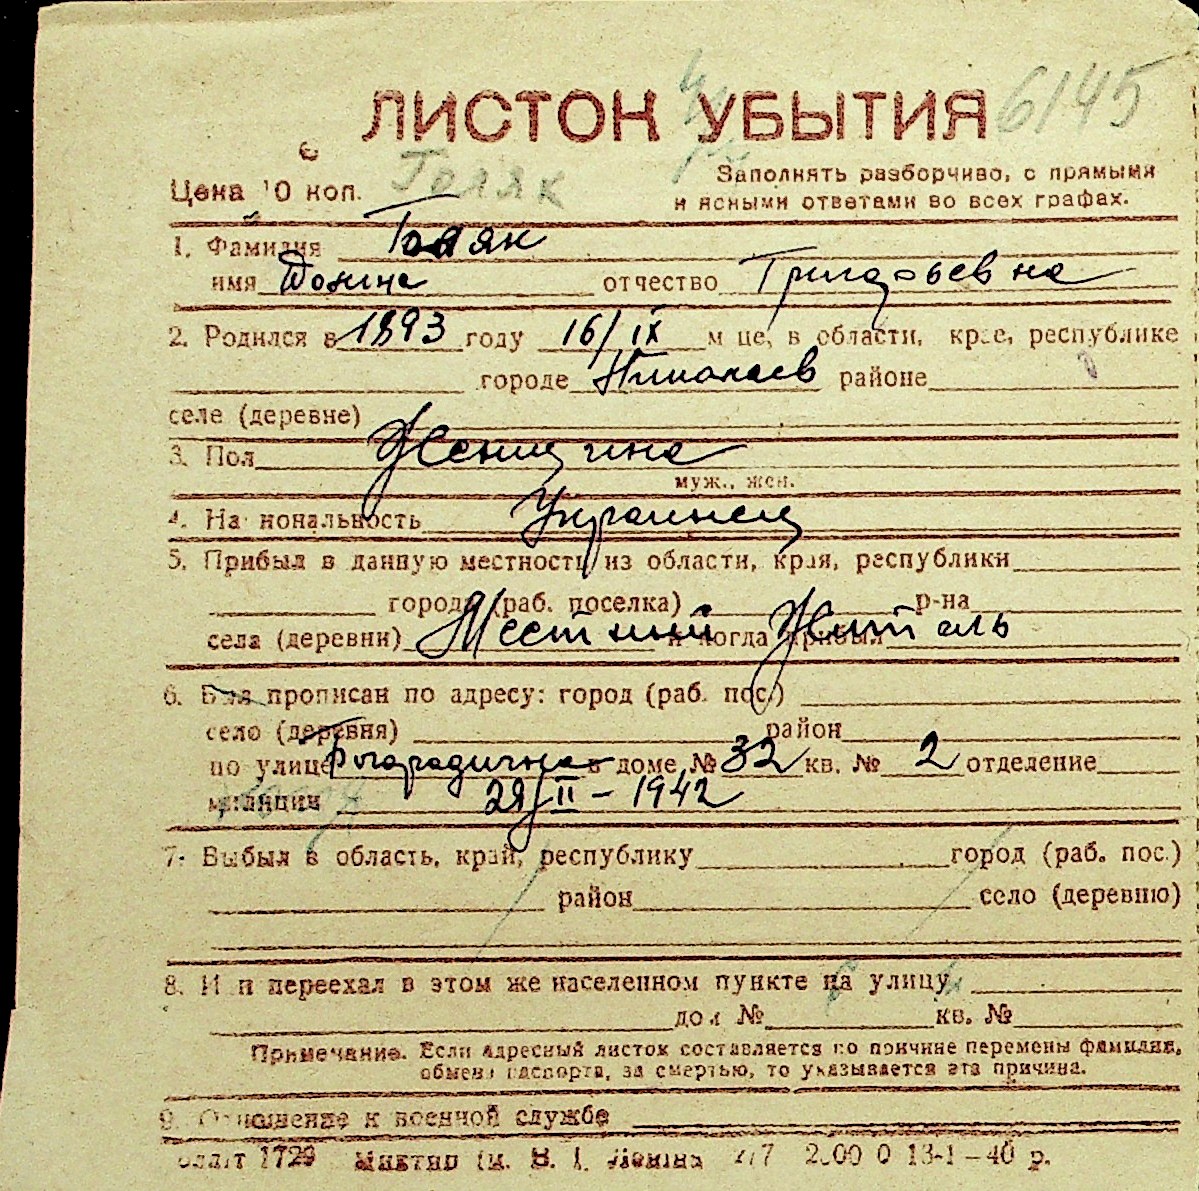 ЛИСТОК УБЫТИЯ 6145
Цена 10 коп. Голяк
Заполнять разборчиво, с прямыми
и ясными ответами во всех графах.
1. Фамилия Голяк
имя отчество Григорьевна
2. Родился в 1893 году 16/IX м-це, в области, крае, республике
городе Николаев районе
селе (деревне)
3. Пол Женщина
муж., жен.
4. Национальность Украинец
5. Прибыл в данную местность из области, края, республики
города (раб. поселка) р-на
села (деревни) Местный Житель и когда прибыл
6. Был прописан по адресу: город (раб. пос.)
село (деревня) район
по улице в доме № 32 кв. № 2 отделение
милиции 29/II - 1942
7. Выбыл в область, край, республику город (раб. пос.)
район село (деревню)
8. Или переехал в этом же населенном пункте на улицу
дом № кв. №
Примечание. Если адресный листок составляется по причине перемены фамилии,
обмена паспорта, за смертью, то указывается эта причина.
9. Отношение к военной службе
1729 им. В. И. Ленина 13-I-40 р.